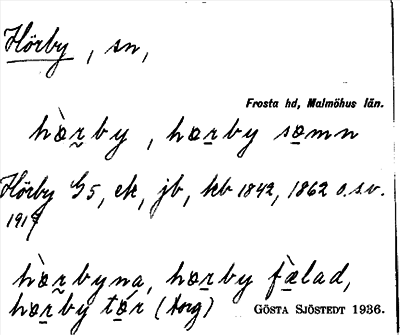 Hörby, sn,
Frosta hd, Malmöhus län.
hæ̀r̰by, hær̲by sæ̲mn
Hörby G5, ek, jb, kb 1842, 1862 o.s.v.
1917
hæ̀r̰byna, hær̲by fæ̀lad,
hær̲by tár (torg) GÖSTA SJÖSTEDT 1936.